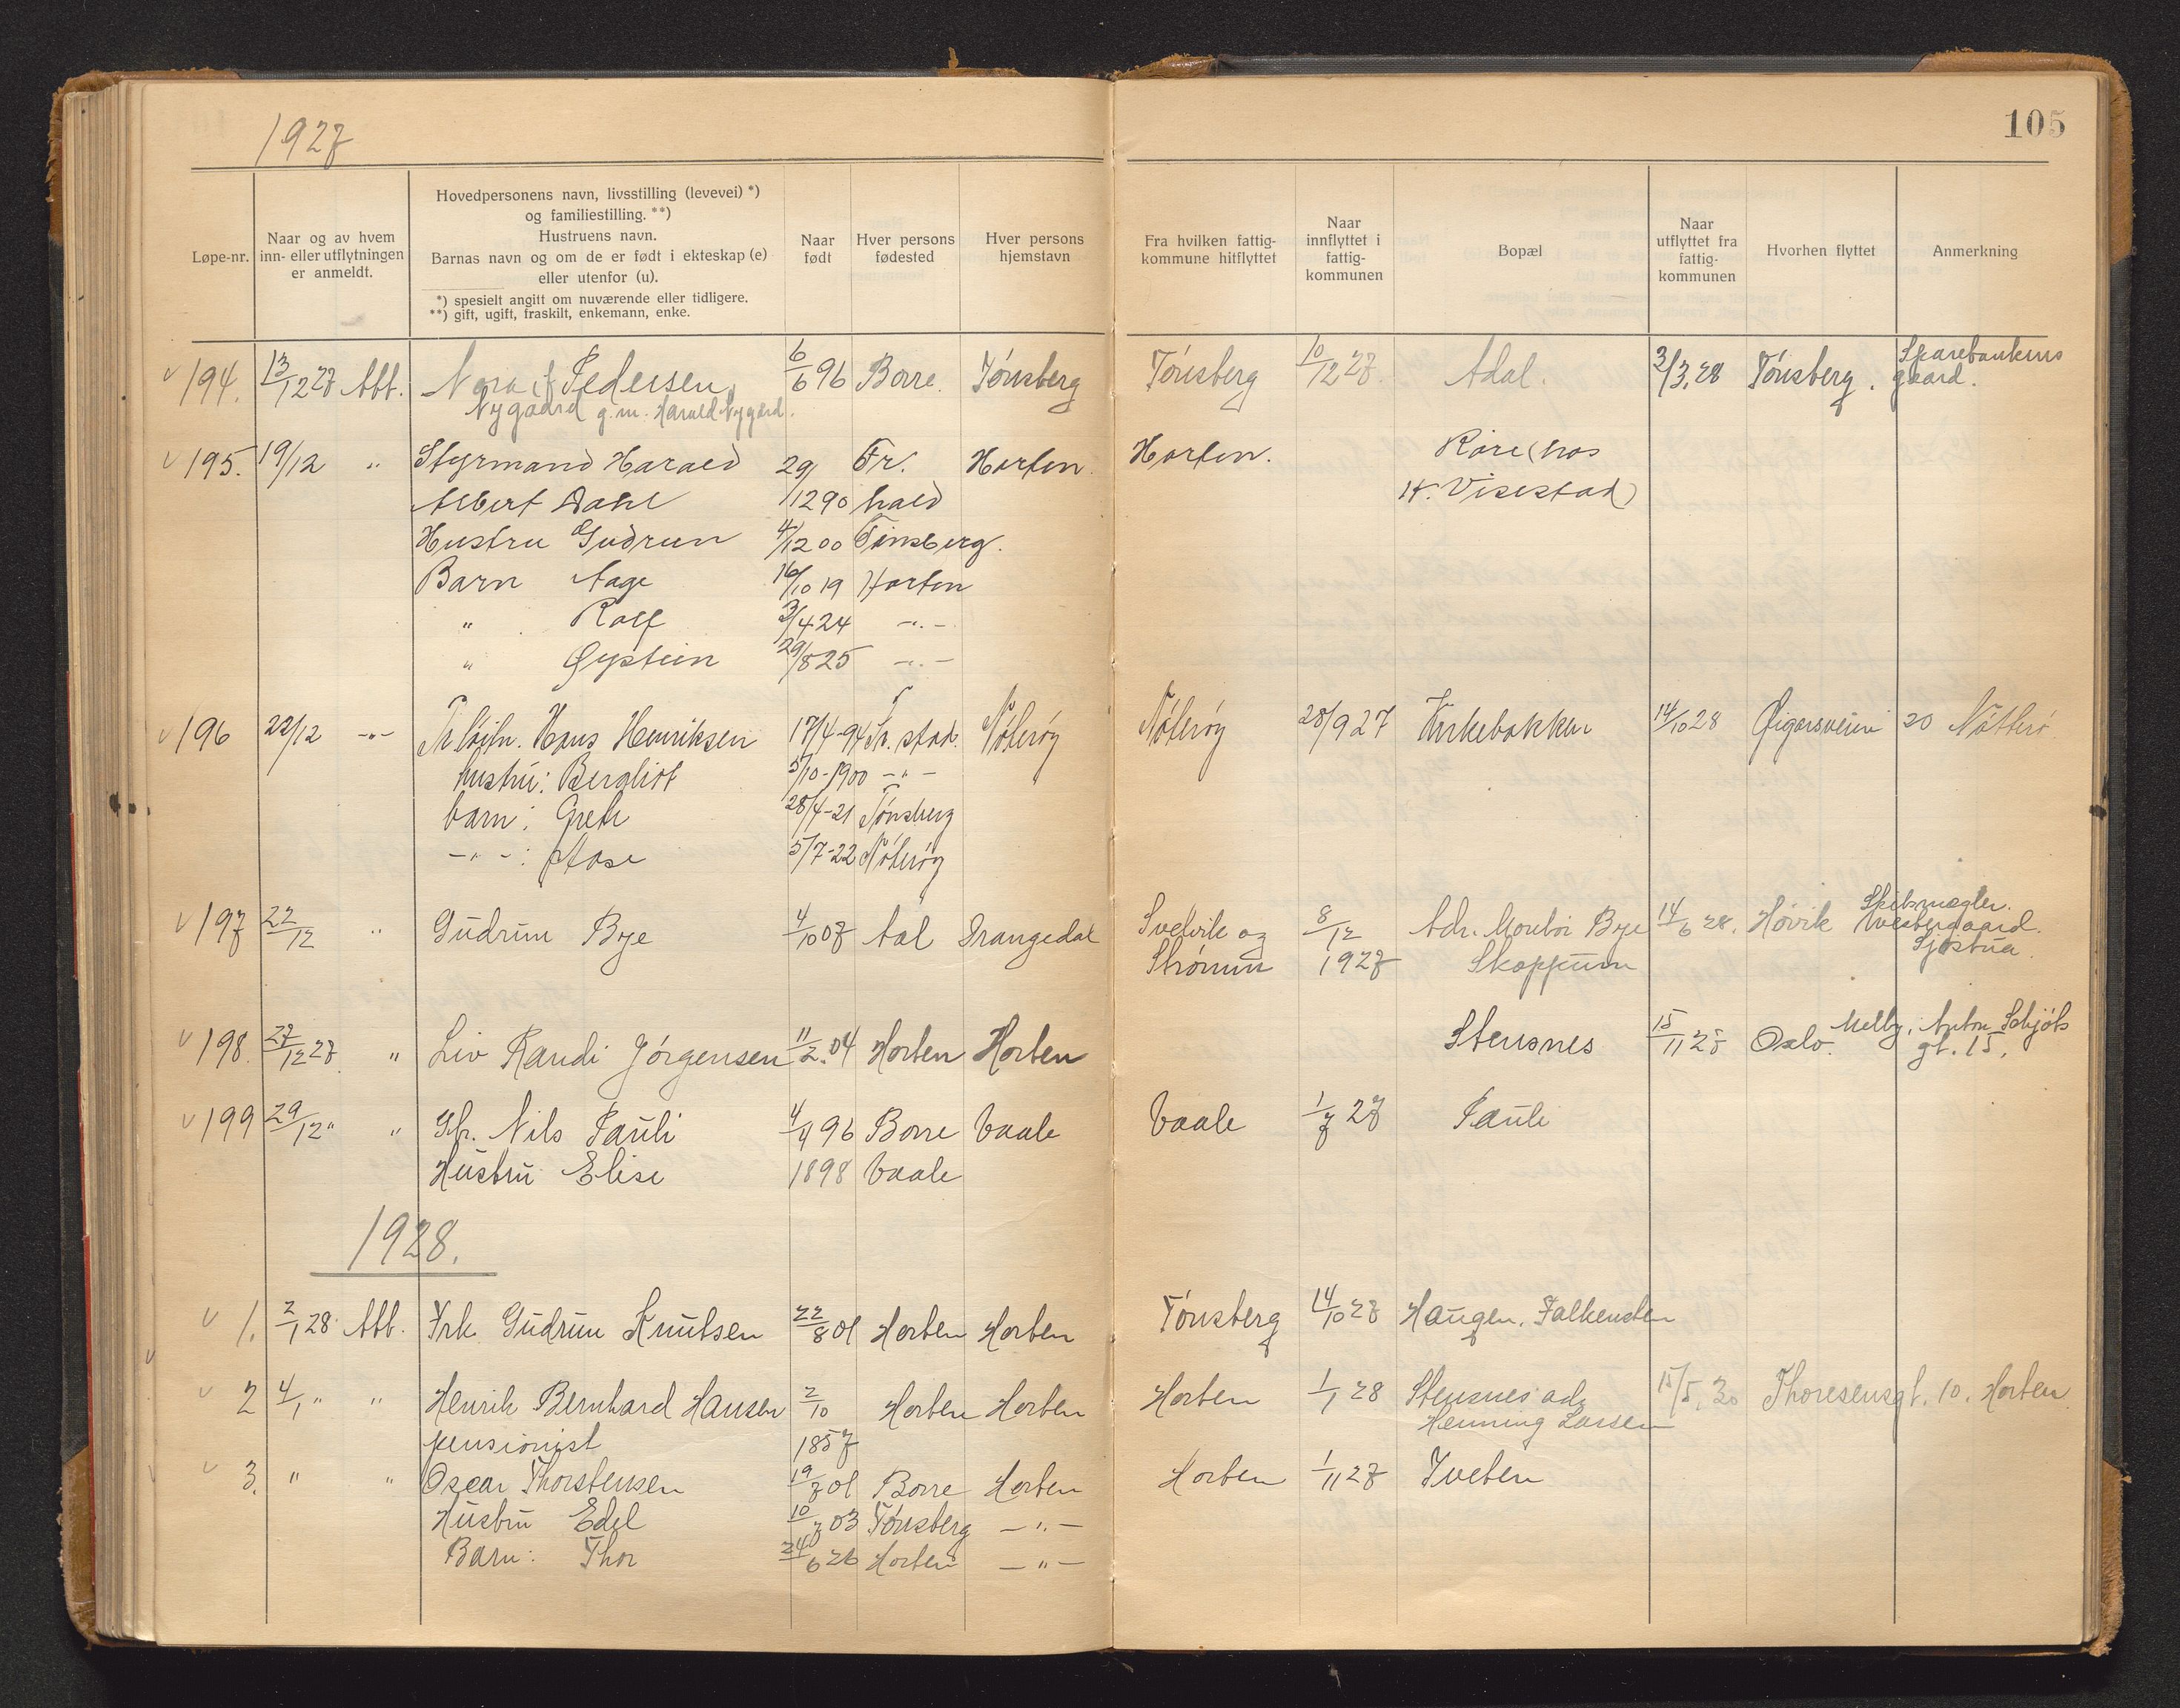 1927
105
Løpe-nr.
Naar og av hvem
inn- eller utflytningen
er anmeldt.
Hovedpersonens navn, livsstilling (levevei) *)
og familiestilling. **)
Hustruens navn.
Barnas navn og om de er født i ekteskap (e)
eller utenfor (u).
*) spesielt angitt om nuværende eller tidligere.
**) gift, ugift, fraskilt, enkemann, enke.
Naar
født
Hver persons
fødested
Hver persons
hjemstavn
Fra hvilken fattig-
kommune hitflyttet
Naar
innflyttet i
fattig-
kommunen
Bopæl
Naar
utflyttet fra
fattig-
kommunen
Hvorhen flyttet
Anmerkning
194. 13/12 27 Att. Nora Pedersen 6/6 96 Borre. Tønsberg Tønsberg 10/12 27. Adal. 2/3. 28 Tønsberg. Sparebankens
Nygaard g.m. Harald Nygård. gaard.
195. 19/12 " Styrmand Harald 29/ Fr. Horten. Horten. Røre (hos
Albert Dahl /12 90 hald H. Visestad)
Hustru Gudrun 4/12 00 Tønsberg.
Barn Aage 16/10 19 Horten
" Rolf 3/4 24 -"-
" Øystein 29/8 25 -"-
196 22/12 -"- Hans Henriksen 17/4-94 Fr. stad. Nøterøy Nøterøy 28/9 27 Kirkebakken 14/10 28 20 Nøtterø
hustru: Bergliot 5/10-1900 -"-
barn: Grete 28/4-21 Tønsberg
-"-: Aase 5/7-22 Nøterøy
197 22/12 " Gudrun Bye 4/10 07 Aal Drangedal Svelvik og 8/12 Adr. Montør Bye 14/6 28. Høvik Skibsmægler.
Strømm 1927 Skoppum Westergaard.
Sjøstua.
198. 27/12 27. " Liv Randi Jørgensen 11/2. 04 Horten Horten Stensnes 15/11 28 Oslo. Melby, Anton Schjøts
gt. 15.
199 29/12 " " Nils Pauli 4/4 96 Borre Vaale Vaale 1/7 27 Pauli
Hustru Elise 1898 Vaale
1928.
1. 2/1 28 Att. Frk. Gudrun Knutsen 22/8 01 Horten Horten Tønsberg 14/10 27 Haugen, Falkensten
2 4/1 " " Henrik Bernhard Hansen 2/10 Horten Horten Horten 1/1 28 Stensnes adr 15/5. 30 Thoresensgt. 10. Horten
pensionist 1857 Henning Larsen
3. " " Oscar Thorstensen 19/7 01 Borre Horten Horten 1/11 27 Tveten
Hustru Edel 10/7 03 Tønsberg -"-
Barn: Thor 24/6 26 Horten -"-